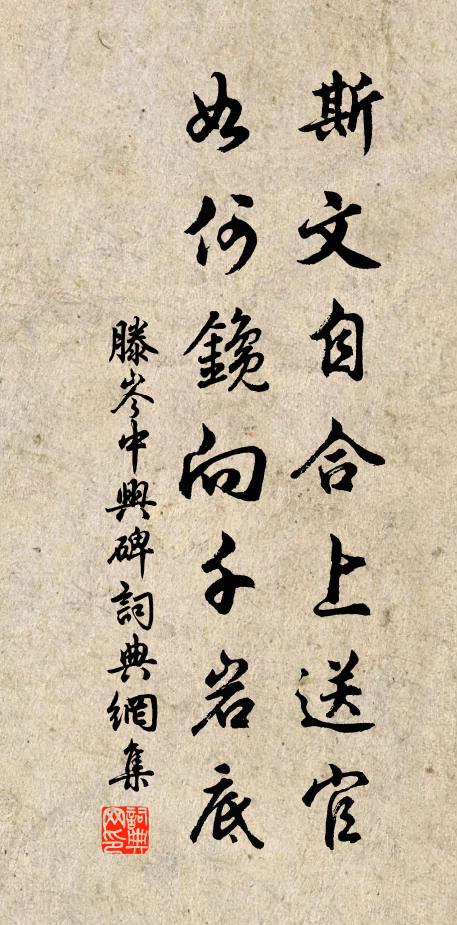 斯文自合上送官
如何鑱向千岩底
滕岑中興碑詞典網集
詞典網印